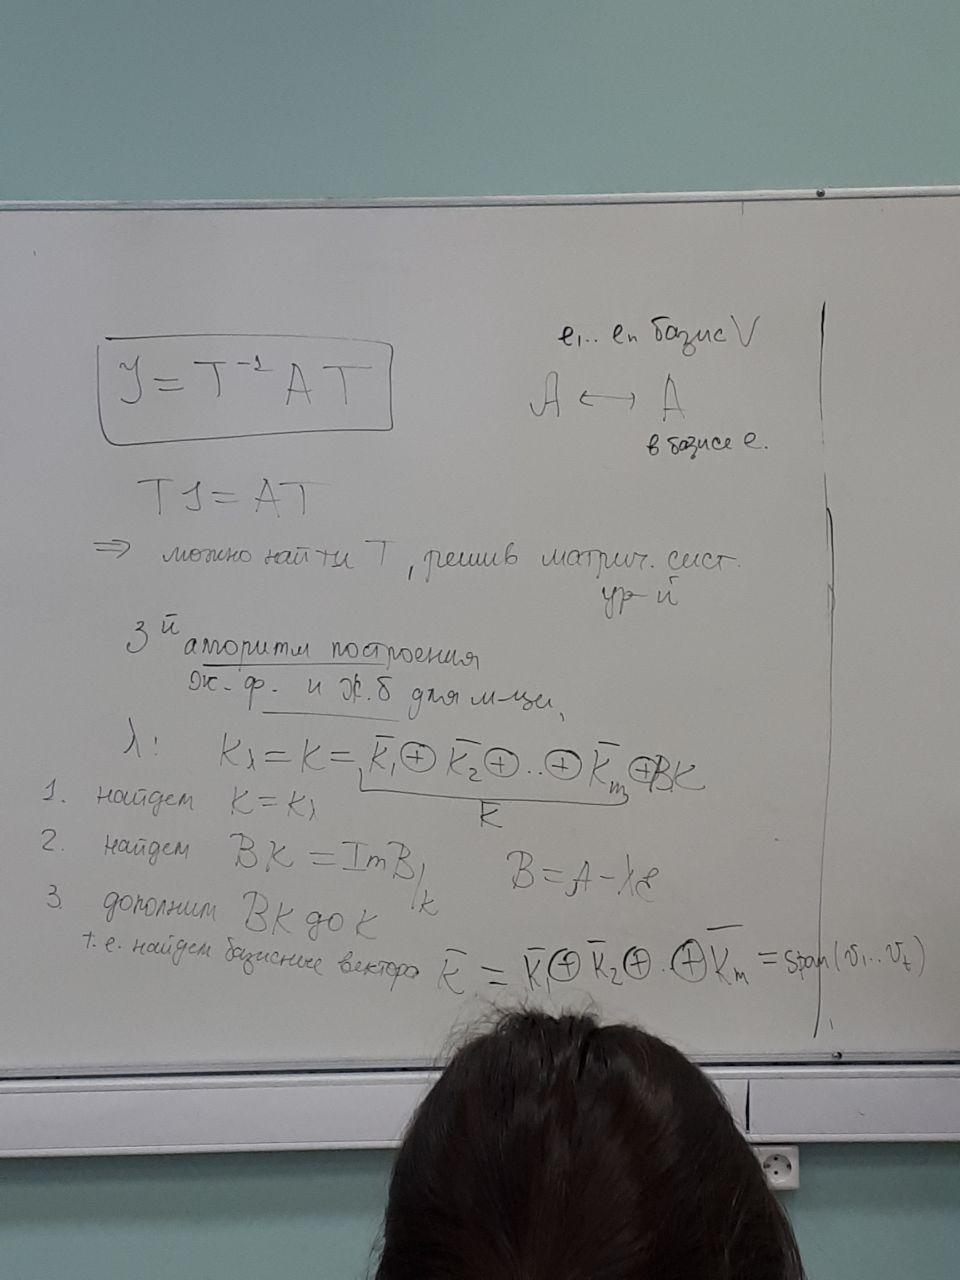 J = T⁻¹ A T
e₁.. eₙ базис V
𝒜 ↔ A
в базисе e.
T J = A T
⇒ можно найти T, решив матрич. сист.
ур-й
3й алгоритм построения
Ж.ф. и Ж.б для м-цы,
λ: K_λ = K = K̄₁ ⊕ K̄₂ ⊕ .. ⊕ K̄ₘ ⊕ BK
K̄
1. найдем K = K_λ
2. найдем BK = Im B|_K B = 𝒜 - λℰ
3. дополним BK до K
т.е. найдем базисные вектора K̄ = K̄₁ ⊕ K̄₂ ⊕ . ⊕ K̄ₘ = span(v₁.. v_t)